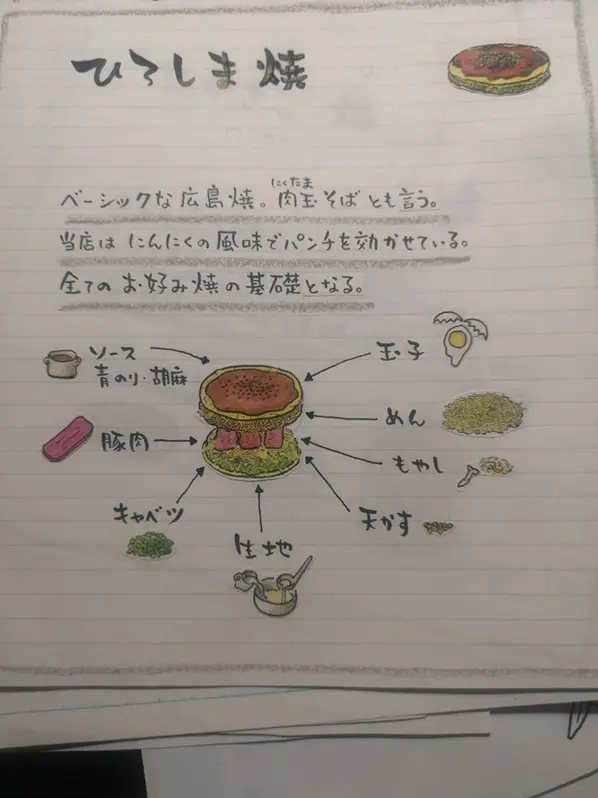 ひろしま焼
ベーシックな広島焼。肉玉そばとも言う。
にくたま
当店はにんにくの風味でパンチを効かせている。
全てのお好み焼の基礎となる。
ソース
青のり・胡麻
玉子
めん
豚肉
もやし
キャベツ
天かす
生地